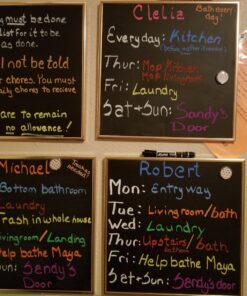 y must be done
list for it to be
as done.
I not be told
chores. You must
aily chores to recieve
are to remain
no allowance!
Clelia
Bath every
day!
Everyday: Kitchen
Thur: Mop Kitchen
Mop livingroom
Fri: Laundry
Sat+Sun: Sandy's
Door
Michael
Bottom bathroom
Laundry
Trash in whole house
ivingroom/Landing
Help bathe Maya
Sun: Sendy's
Door
Robert
Mon: Entry way
Tue: Living room/bath
Wed: Laundry
Thur: Upstairs bath
Fri: Help bathe Maya
Sat+Sun: Sendy's door